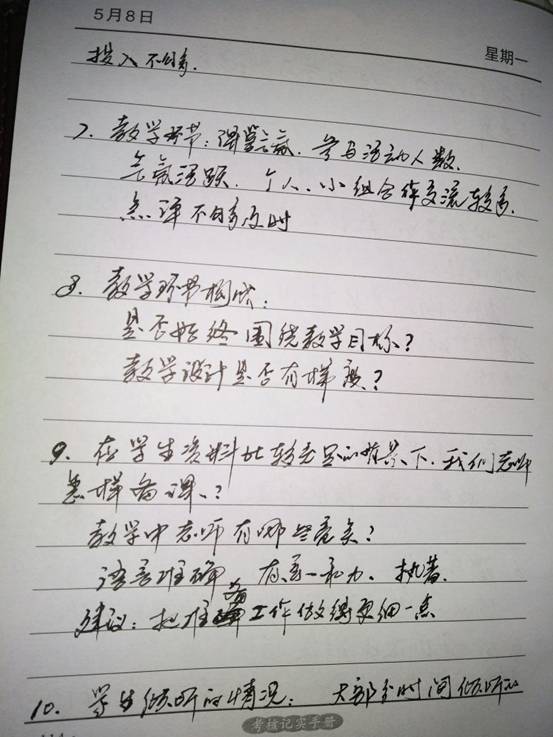 5月8日
星期一
投入不够.
7. 教学环节:课堂气氛. 参与活动人数.
气氛活跃. 个人、小组合作交流较多.
点评不够及时
8. 教学环节构成:
是否始终围绕教学目标?
教学设计是否有梯度?
9. 在学生资料比较充足的背景下.我们老师
怎样备课.?
教学中老师有哪些亮点?
语言准确 有亲和力. 执着.
建议:把准备工作做得更细一点
10. 学生倾听的情况: 大部分时间倾听的
考核记实手册